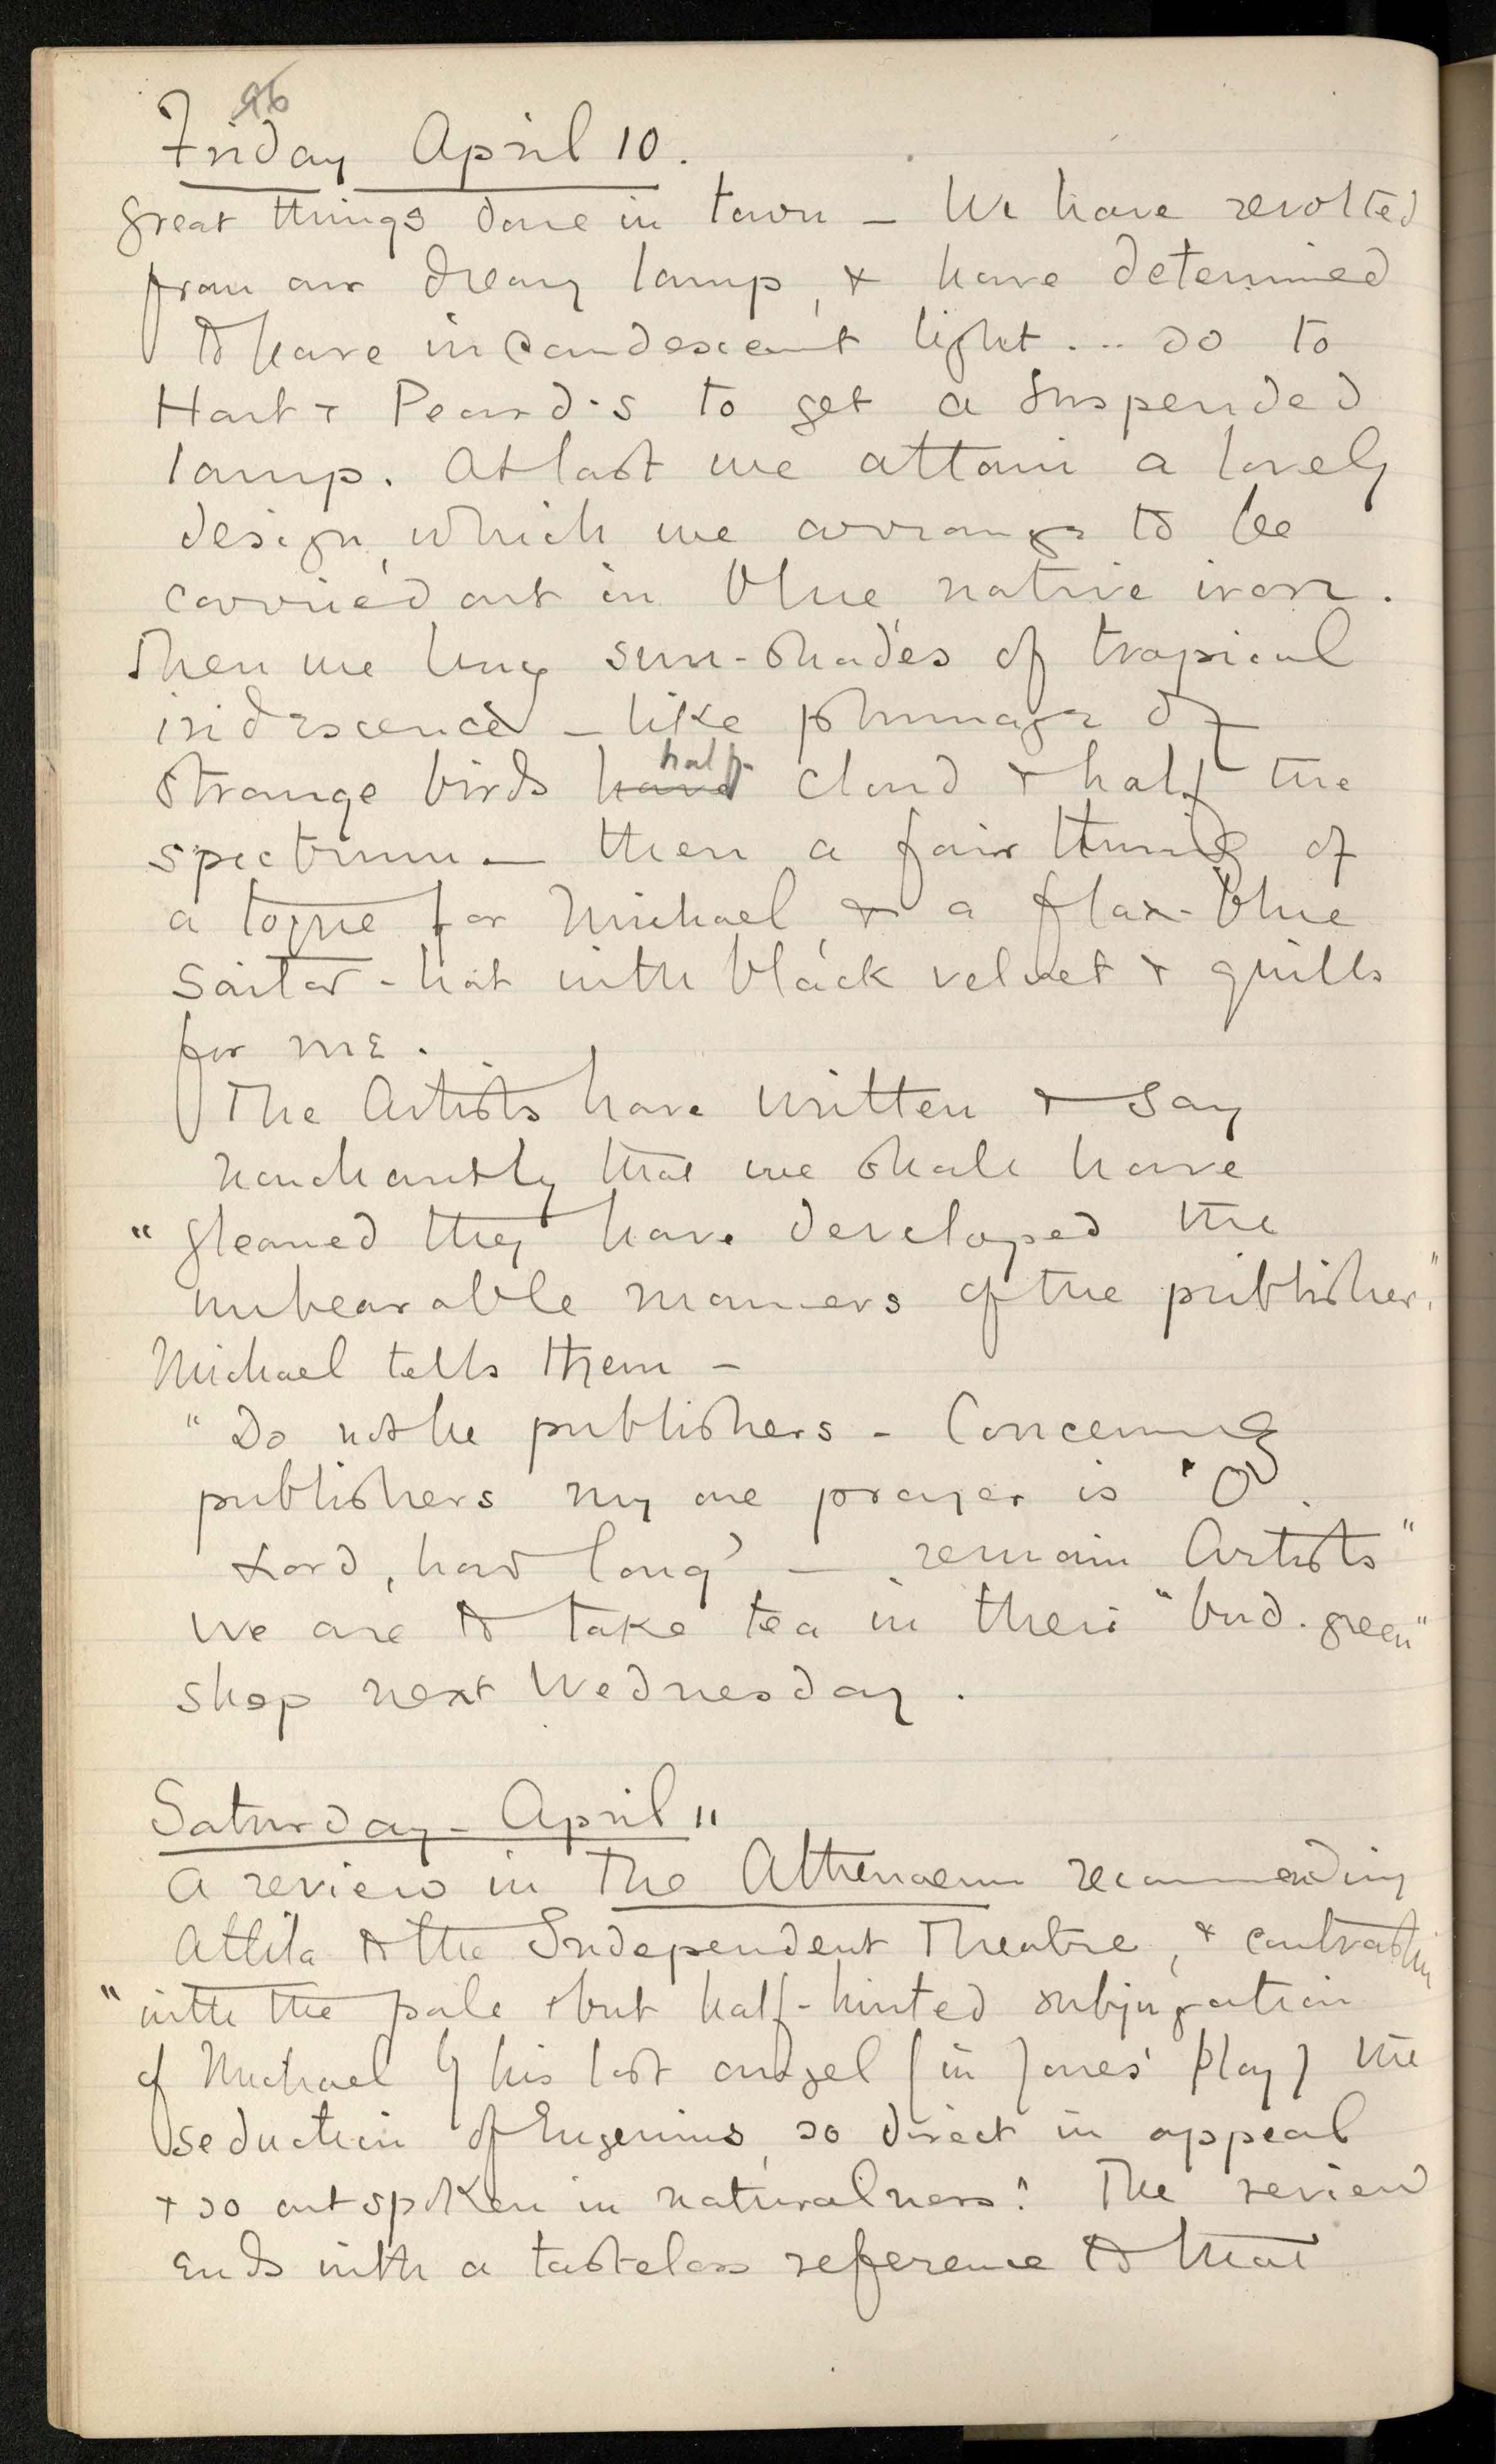 96
Friday April 10.
Great things done in town – We have revolted
from our dreary lamp, & have determined
to have incandescent light ... so to
Hart & Peard's to get a suspended
lamp. At last we attain a lovely
design, which we arrange to be
carried out in blue, native iron.
Then we buy sun-shades of tropical
iridescence – like plumage of
strange birds half cloud & half the
spectrum – then a fair thing of
a toque for Michael, & a flax-blue
Sailor-hat with black velvet & quills
for me.
The Artists have written & say
nonchantly that we shall have
"gleaned they have developed the
unbearable manners of the publisher."
Michael tells them –
"Do not be publishers – Concerning
publishers my one prayer is 'O
Lord, how long' – remain Artists"
We are to take tea in their "bud-green"
shop next Wednesday.
Saturday – April 11
A review in The Athenaeum recommending
Attila to the Independent Theatre, & contrasting
"with the pale & but half-hinted subjugation
of Michael by his lost angel (in Jones' play) the
seduction of Eugenius, so direct in appeal
& so outspoken in naturalness." The review
ends with a tasteless reference to that